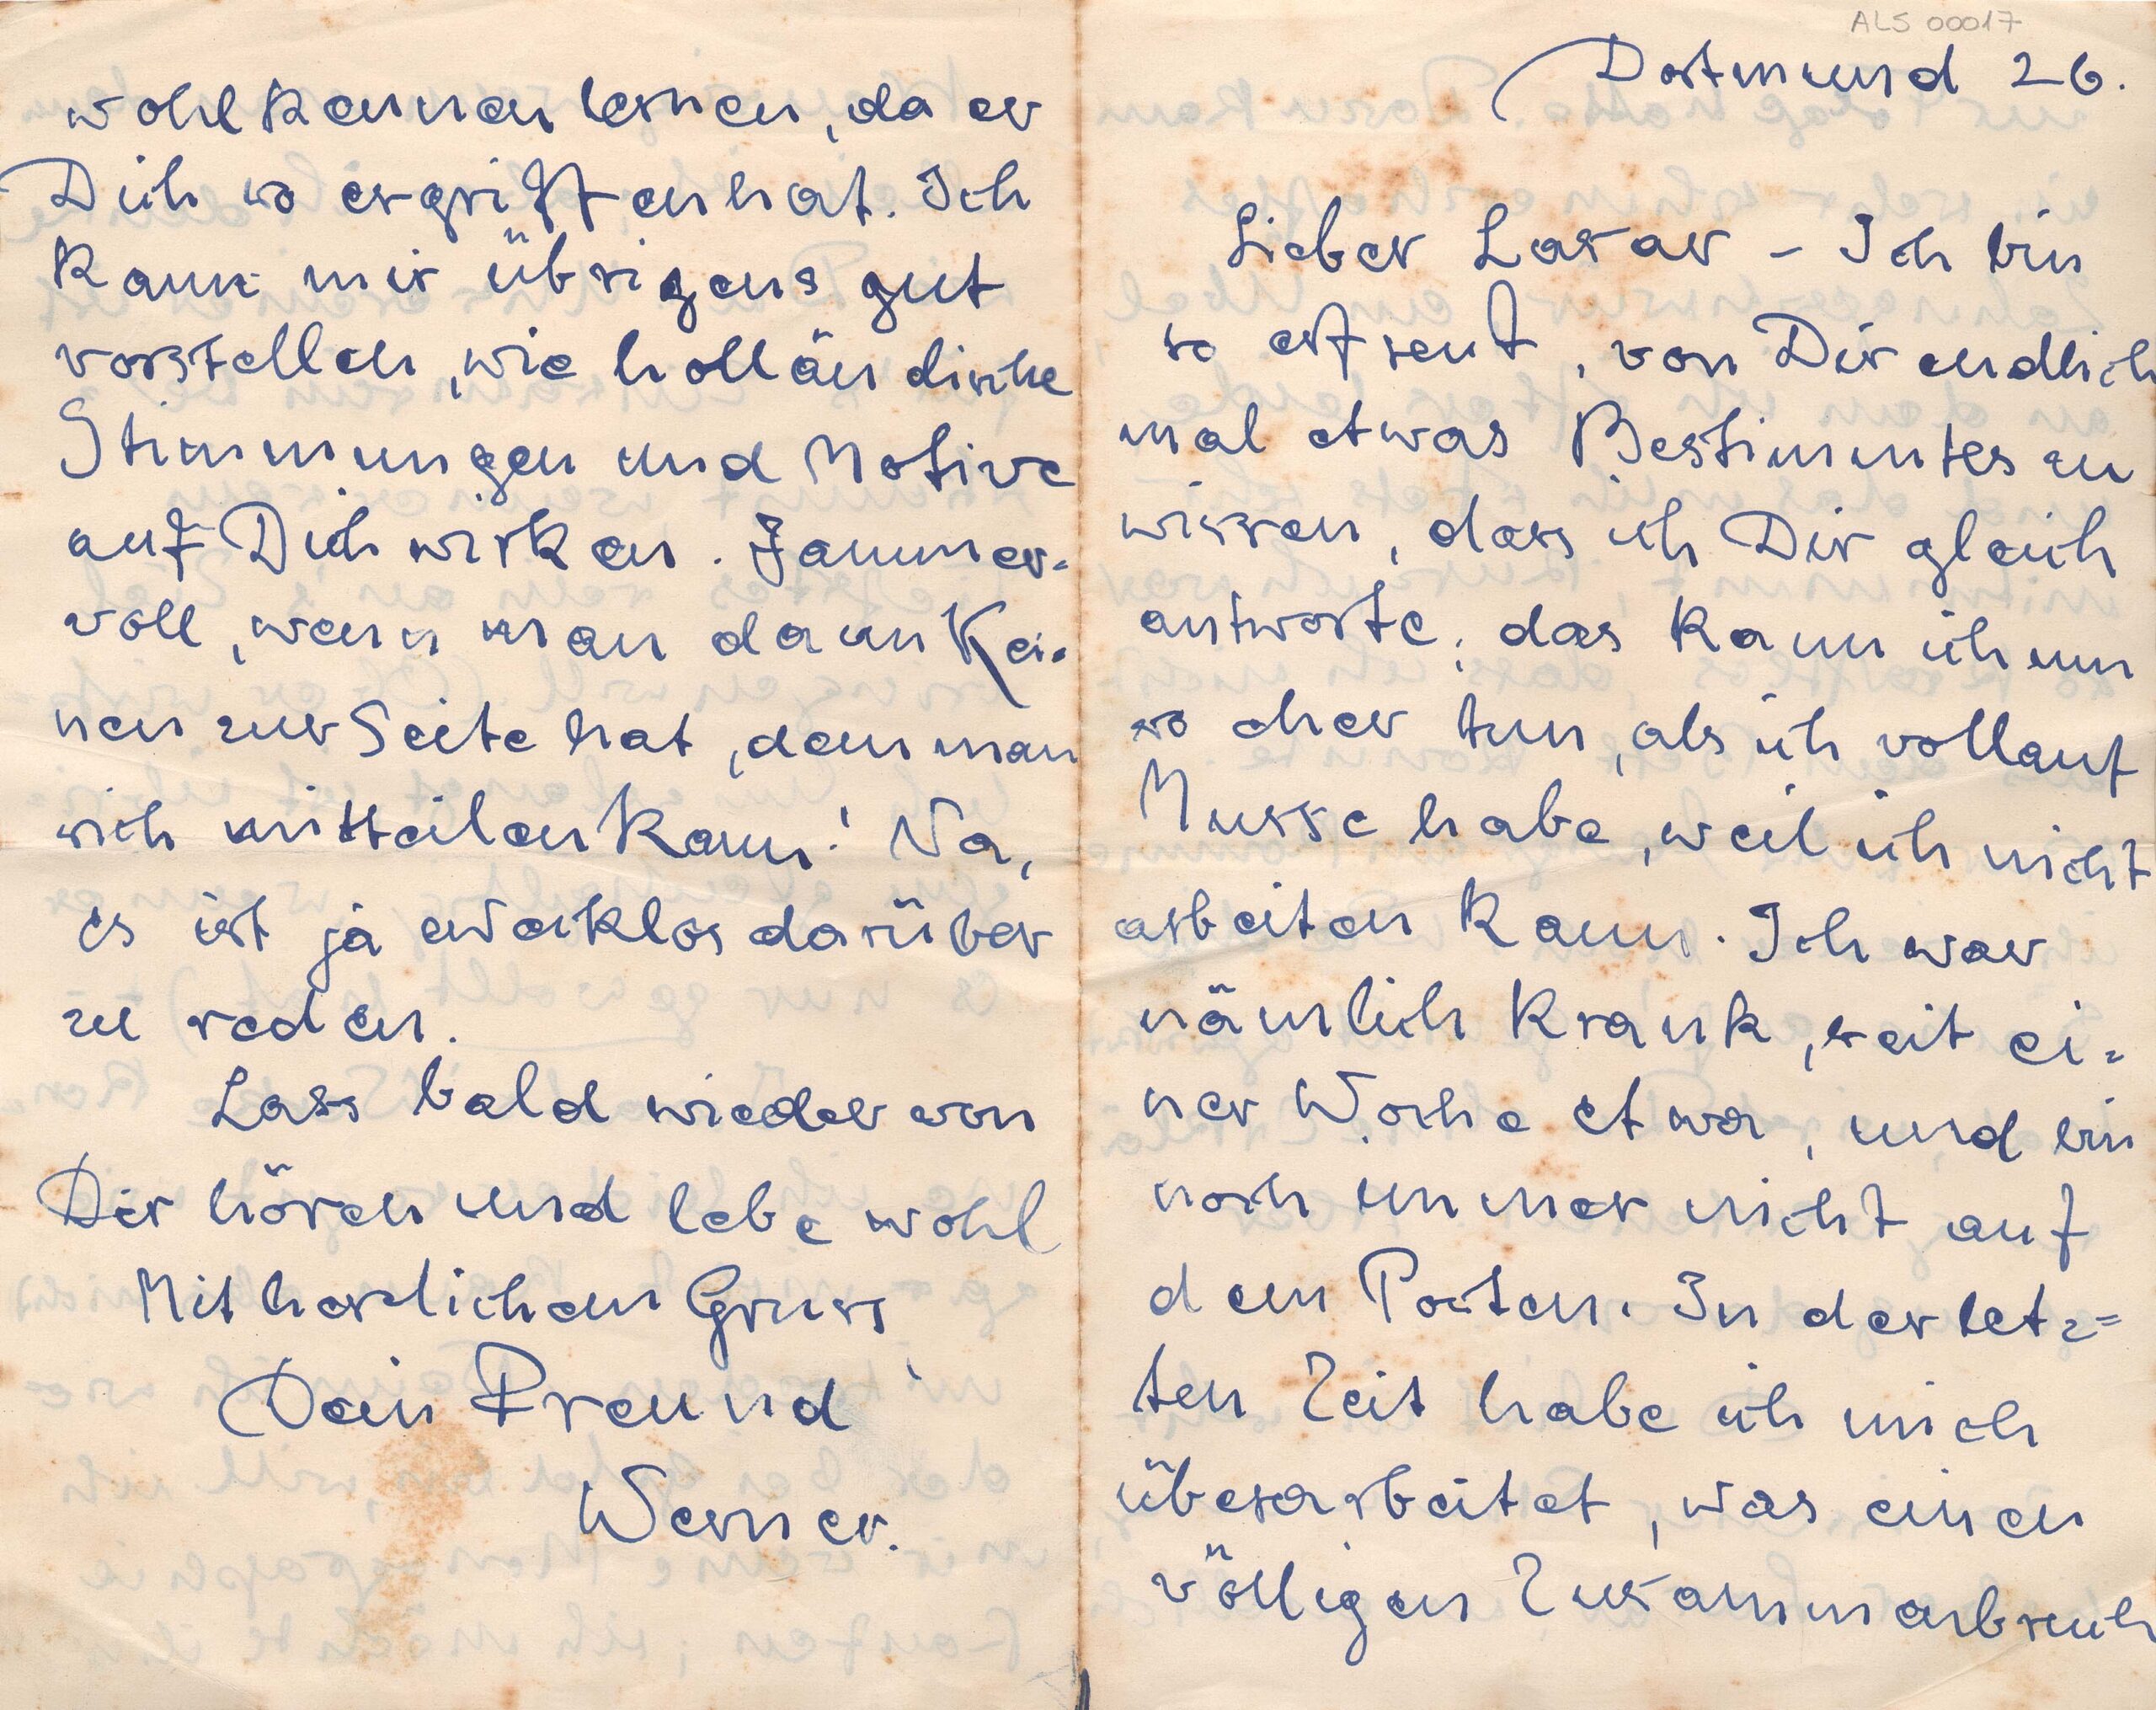 ALS 00017
Dortmund 26.
Lieber Lasar – Ich bin
so erfreut, von Dir endlich
mal etwas Bestimmtes zu
wissen, dass ich Dir gleich
antworte; das kann ich um
so eher tun, als ich vollauf
Musse habe, weil ich nicht
arbeiten kann. Ich war
nämlich krank, seit ei=
ner Woche etwa, und bin
noch immer nicht auf
dem Posten. In der letz=
ten Zeit habe ich mich
überarbeitet, was einen
völligen Zusammenbruch
wohl kennen lernen, da er
Dich so ergriffen hat. Ich
kann mir übrigens gut
vorstellen, wie holländische
Stimmungen und Motive
auf Dich wirken. Jammer=
voll, wenn man dann Kei=
nen zur Seite hat, dem man
sich mitteilen kann! Na,
es ist ja zwecklos darüber
zu reden.
Lass bald wieder von
Dir hören und lebe wohl
Mit herzlichem Gruss
Dein Freund
Werner.